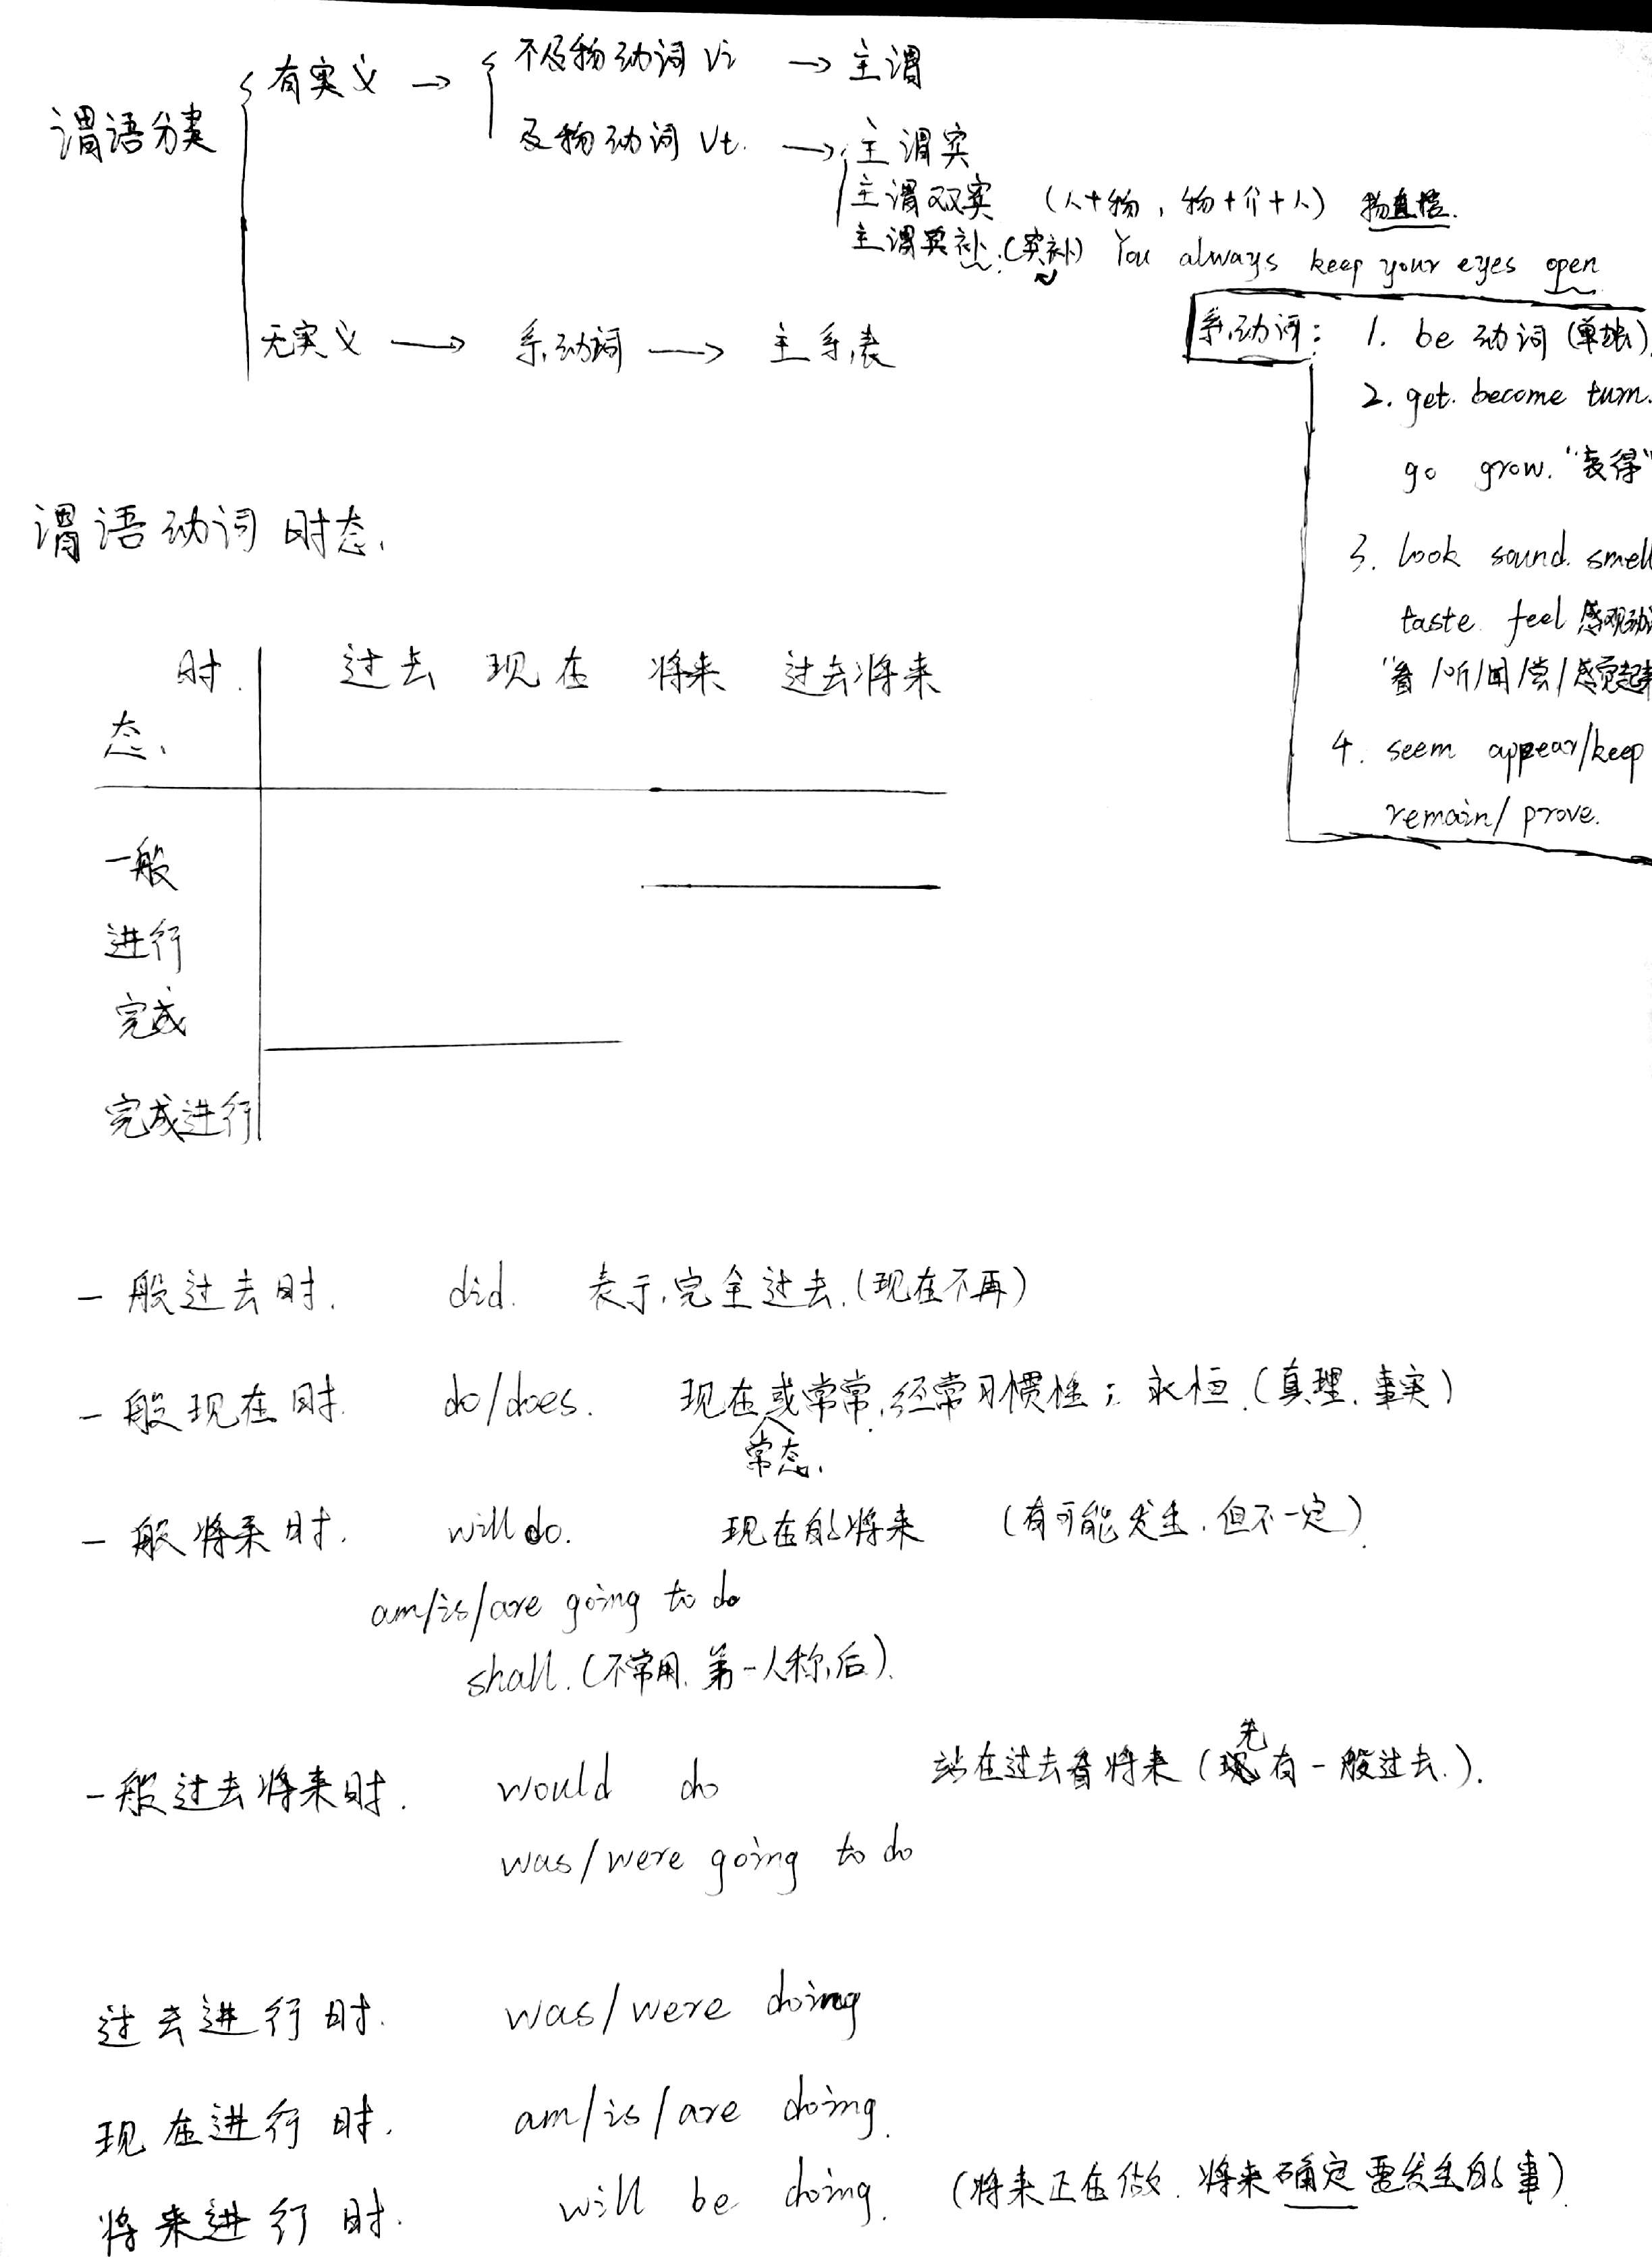 谓语分类
有实义 → 不及物动词 Vi → 主谓
及物动词 Vt. → 主谓宾
主谓双宾 (人+物，物+介+人) 物直
主谓宾补.(宾补) You always keep your eyes open
无实义 → 系动词 → 主系表
系动词: 1. be 动词
2. get. become turn.
go grow.
3. look sound. smell
taste. feel 感观动
"看/听/闻/尝/感觉起来
4. seem appear/keep
remain/ prove.
谓语动词时态.
时. 过去 现在 将来 过去将来
态.
一般
进行
完成
完成进行
一般过去时. did. 表示完全过去.(现在不再)
一般现在时. do/does. 现在或常常,经常习惯性; 永恒.(真理.事实)
常态.
一般将来时. will do. 现在的将来 (有可能发生.但不一定)
am/is/are going to do
shall.(不常用.第一人称后).
一般过去将来时. would do 站在过去看将来 (先有一般过去.).
was/were going to do
过去进行时. was/were doing
现在进行时. am/is/are doing.
将来进行时. will be doing. (将来正在做.将来确定要发生的事)